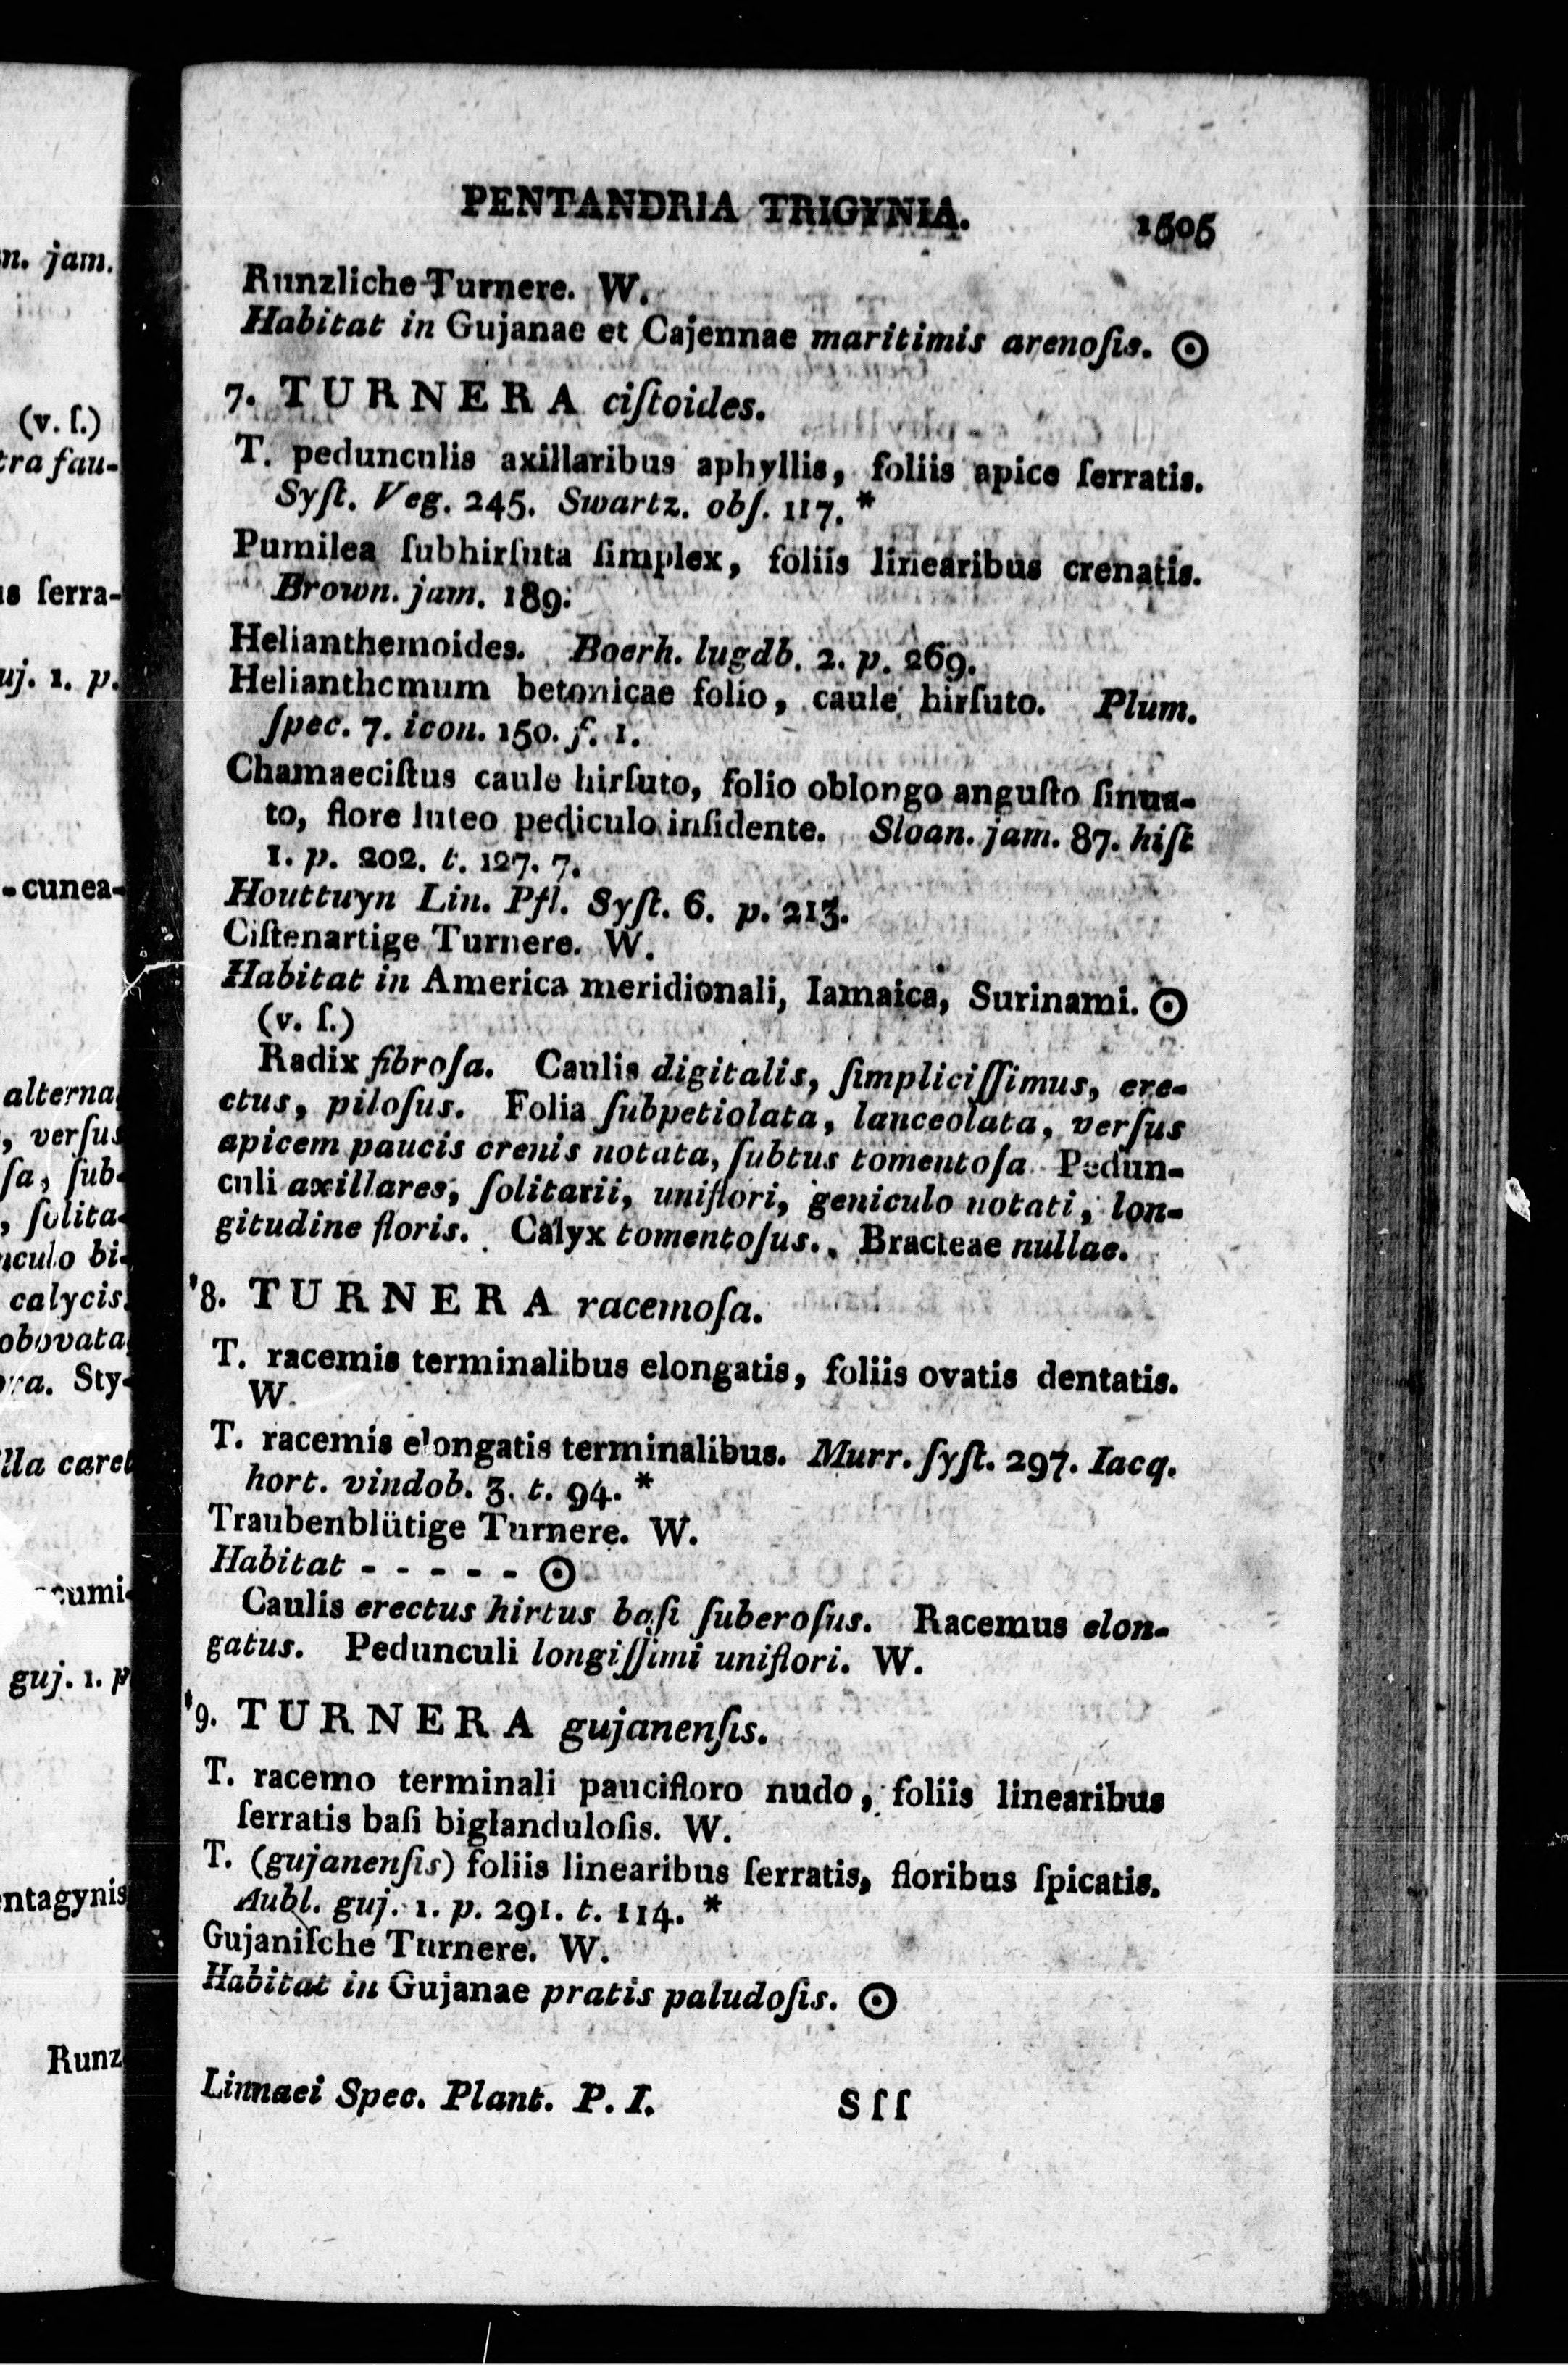 PENTANDRIA TRIGYNIA. 1505
Runzliche Turnere. W.
Habitat in Gujanae et Cajennae maritimis arenoſis. ☉
7. TURNERA ciſtoides.
T. pedunculis axillaribus aphyllis, foliis apice ſerratis.
Syſt. Veg. 245. Swartz. obſ. 117. *
Pumilea ſubhirſuta ſimplex, foliis linearibus crenatis.
Brown. jam. 189.
Helianthemoides. Boerh. lugdb. 2. p. 269.
Helianthemum betonicae folio, caule hirſuto. Plum.
ſpec. 7. icon. 150. f. 1.
Chamaeciſtus caule hirſuto, folio oblongo anguſto ſinua-
to, flore luteo pediculo inſidente. Sloan. jam. 87. hiſt
1. p. 202. t. 127. 7.
Houttuyn Lin. Pfl. Syſt. 6. p. 213.
Ciſtenartige Turnere. W.
Habitat in America meridionali, Iamaica, Surinami. ☉
(v. ſ.)
Radix fibroſa. Caulis digitalis, ſimpliciſſimus, ere-
ctus, piloſus. Folia ſubpetiolata, lanceolata, verſus
apicem paucis crenis notata, ſubtus tomentoſa. Pedun-
culi axillares, ſolitarii, uniflori, geniculo notati, lon-
gitudine floris. Calyx tomentoſus. Bracteae nullae.
*8. TURNERA racemoſa.
T. racemis terminalibus elongatis, foliis ovatis dentatis.
W.
T. racemis elongatis terminalibus. Murr. ſyſt. 297. Iacq.
hort. vindob. 3. t. 94. *
Traubenblütige Turnere. W.
Habitat - - - - - ☉
Caulis erectus hirtus baſi ſuberoſus. Racemus elon-
gatus. Pedunculi longiſſimi uniflori. W.
*9. TURNERA gujanenſis.
T. racemo terminali paucifloro nudo, foliis linearibus
ſerratis baſi biglanduloſis. W.
T. (gujanenſis) foliis linearibus ſerratis, floribus ſpicatis.
Aubl. guj. 1. p. 291. t. 114. *
Gujaniſche Turnere. W.
Habitat in Gujanae pratis paludoſis. ☉
Linnaei Spec. Plant. P. I. Sſſ
n. jam.
(v. ſ.)
tra fau-
ſerra-
uj. 1. p.
-cunea-
alterna,
, verſus
ſub-
, ſolita-
bi-
calycis.
obovata,
Sty-
caret
guj. 1. p
ntagynis
Runz